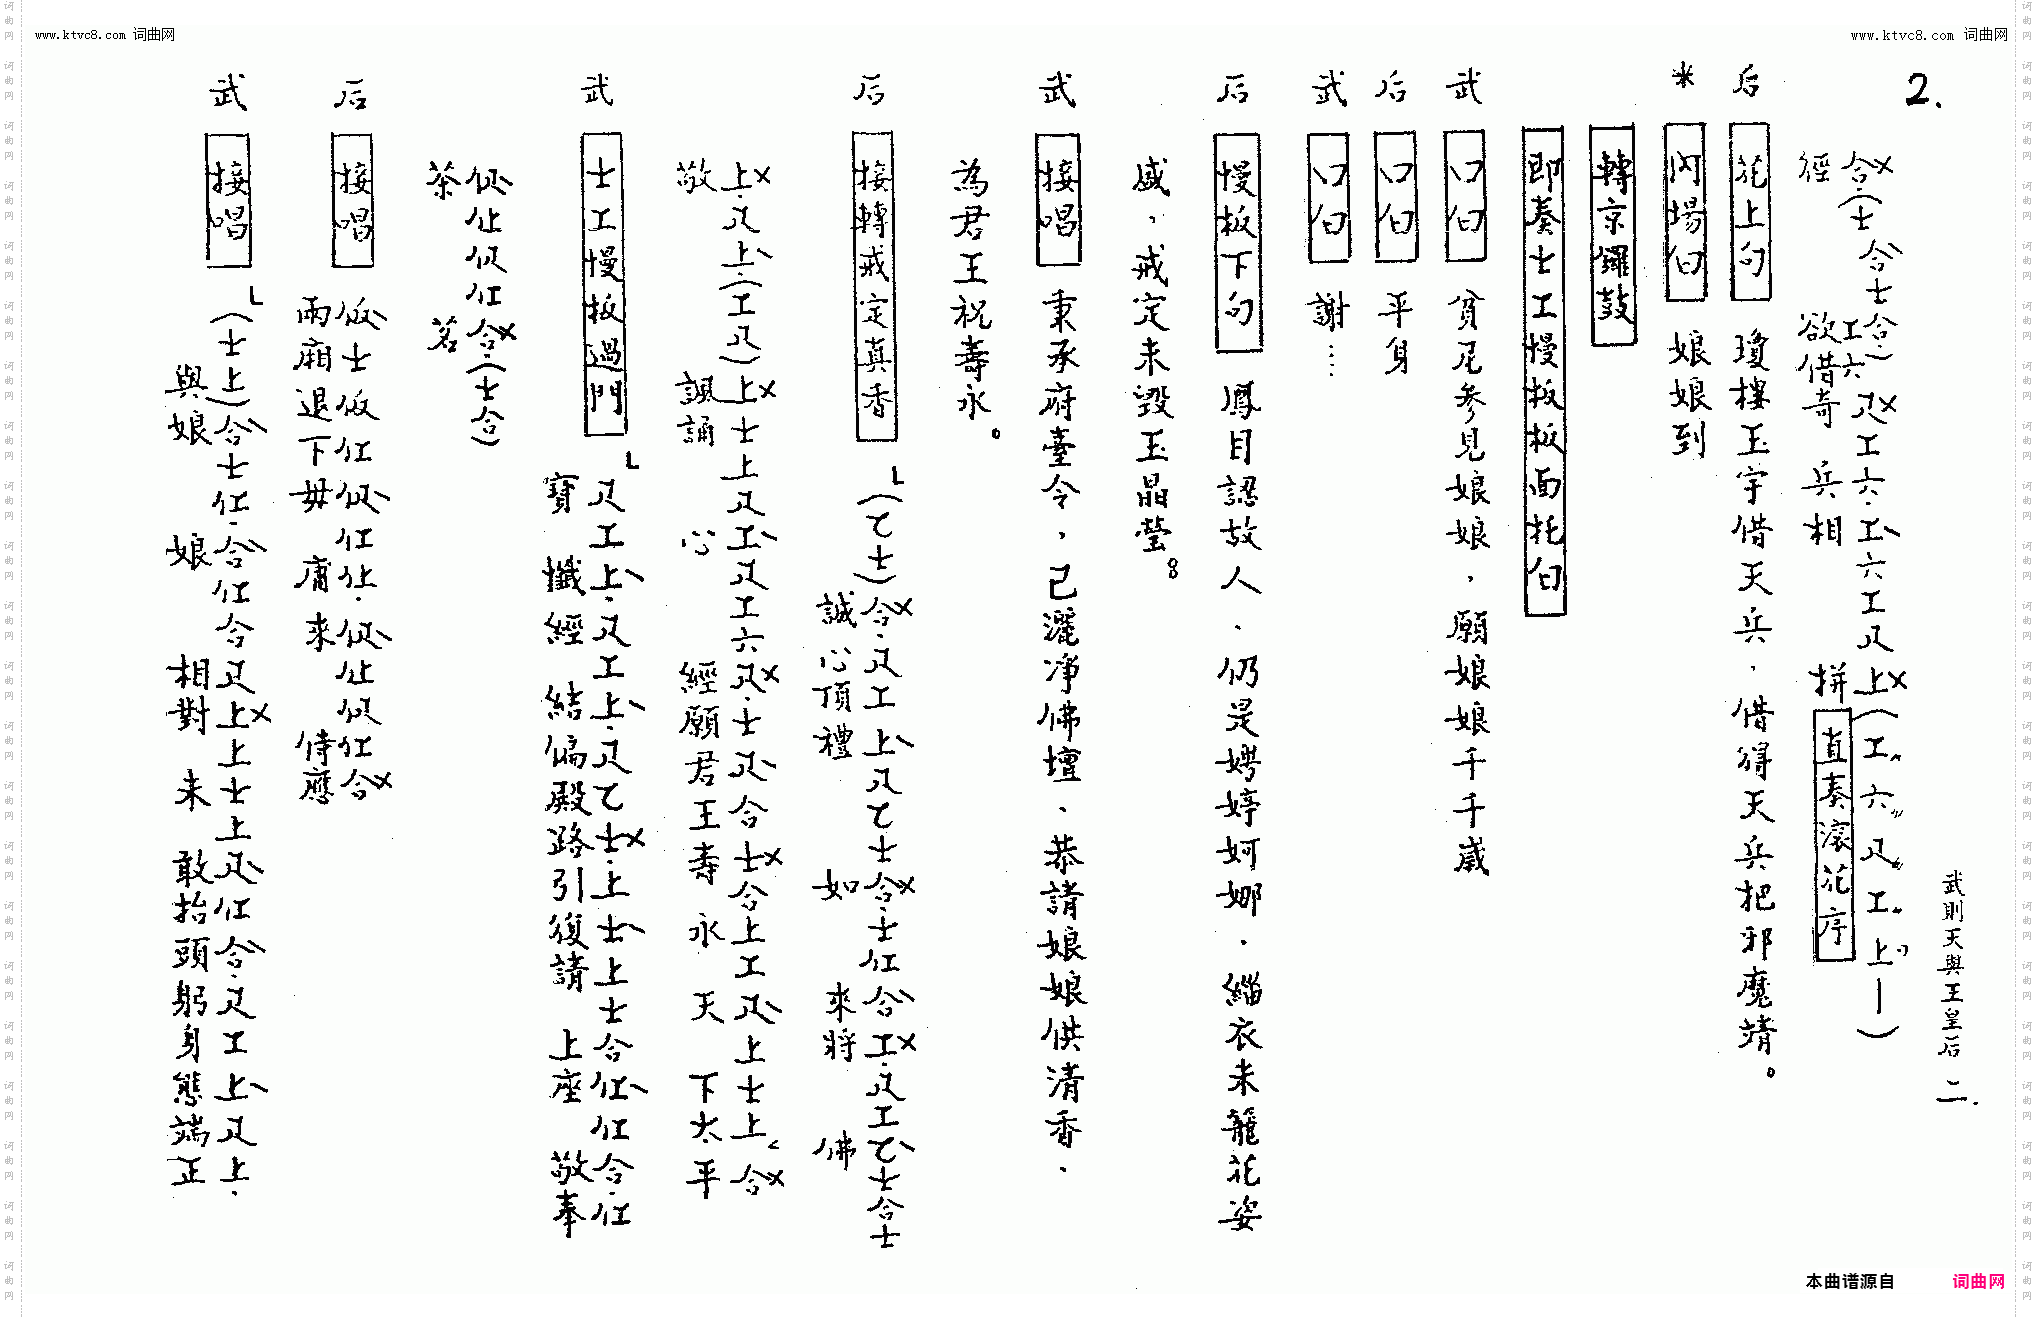 www.ktvc8.com 词曲网
www.ktvc8.com 词曲网
2.
武則天與王皇后 二.
合(士合士合)工六 尺工六.工六工尺上(工六尺工上—)
徑 欲借奇 兵相 拼 直奏滚花序
后 花上句 瓊樓玉宇借天兵，借得天兵把邪魔靖。
* 內場白 娘娘到
轉京鑼鼓
即奏士工慢板板面托白
武 口白 貧尼參見娘娘，願娘娘千千歲
后 口白 平身
武 口白 謝……
后 慢板下句 鳳目認故人、仍是娉婷婀娜．緇衣未籠花姿
盛，戒定未毀玉晶瑩。
武 接唱 秉承府臺令，已灑净佛壇、恭請娘娘供清香．
為君王祝壽永。
后 接轉戒定真香 (乙士)合.尺工上尺乙士合.士仜合工.尺工乙士合士
誠心頂禮 如 來將 佛
上.尺上.(工尺)上士上尺工尺工六尺.士尺合士合上工尺上士上.合
敬 諷誦 心 經願君王壽永 天下太平
武 士工慢板過門 尺工上.尺工上.尺乙士.上士上士合仜仜合.仜
寶 懺經 結偏殿路引復請 上座 敬奉
伬仩伬仜合.(士合)
茶 茗
后 接唱 伬士伬仜伬仜仩.伬仩伬仜合
兩廂退下毋 庸來 侍應
武 接唱 (士上)合士仜.合仜合尺上上士上尺仜合.尺工上尺上.
與娘 娘 相對 未 敢抬頭躬身態端正
本曲谱源自 词曲网